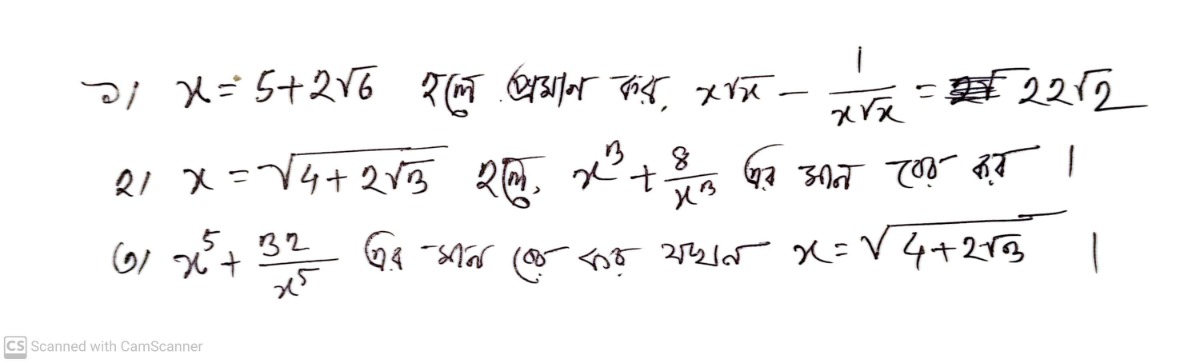 ১। x = 5+2√6 হলে প্রমান কর, x√x − 1/x√x = 22√2
২। x = √4+2√3 হলে, x³ + 8/x³ এর মান বের কর।
৩। x⁵ + 32/x⁵ এর মান বের কর যখন x = √4+2√3 ।
CS Scanned with CamScanner